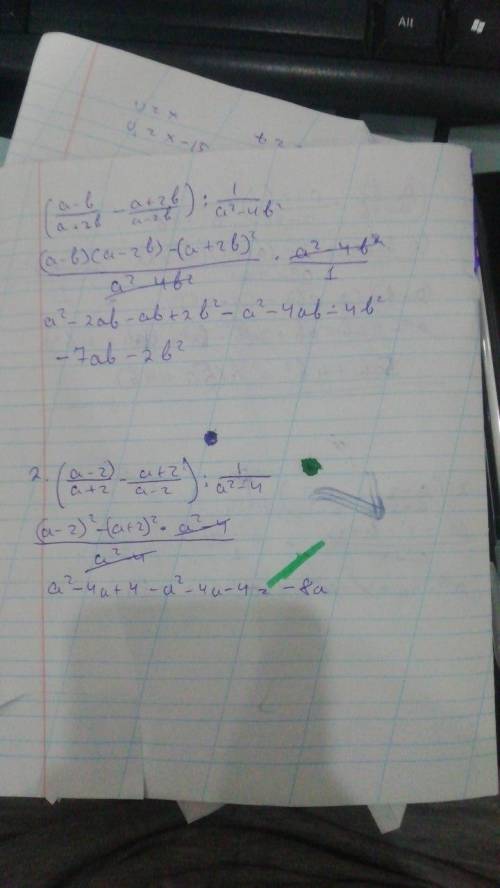 All
y = x
y = x - 15
(a-b/a+2b - a+2b/a-2b) : 1/a²-4b²
(a-b)(a-2b)-(a+2b)²/a²-4b² · a²-4b²/1
a²-2ab-ab+2b²-a²-4ab-4b²
-7ab-2b²
2. (a-2/a+2 - a+2/a-2) : 1/a²-4
(a-2)²-(a+2)² · a²-4/a²-4
a²-4a+4-a²-4a-4= -8a